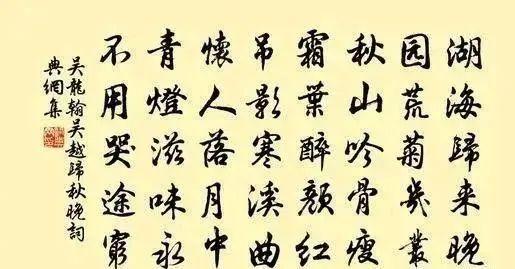 湖海歸来晚
园荒菊幾叢
秋山吟骨瘦
霜葉醉顏紅
吊影寒溪曲
懷人落月中
青燈滋味永
不用哭途窮
吳龍翰吳越歸秋晚詞
典網集